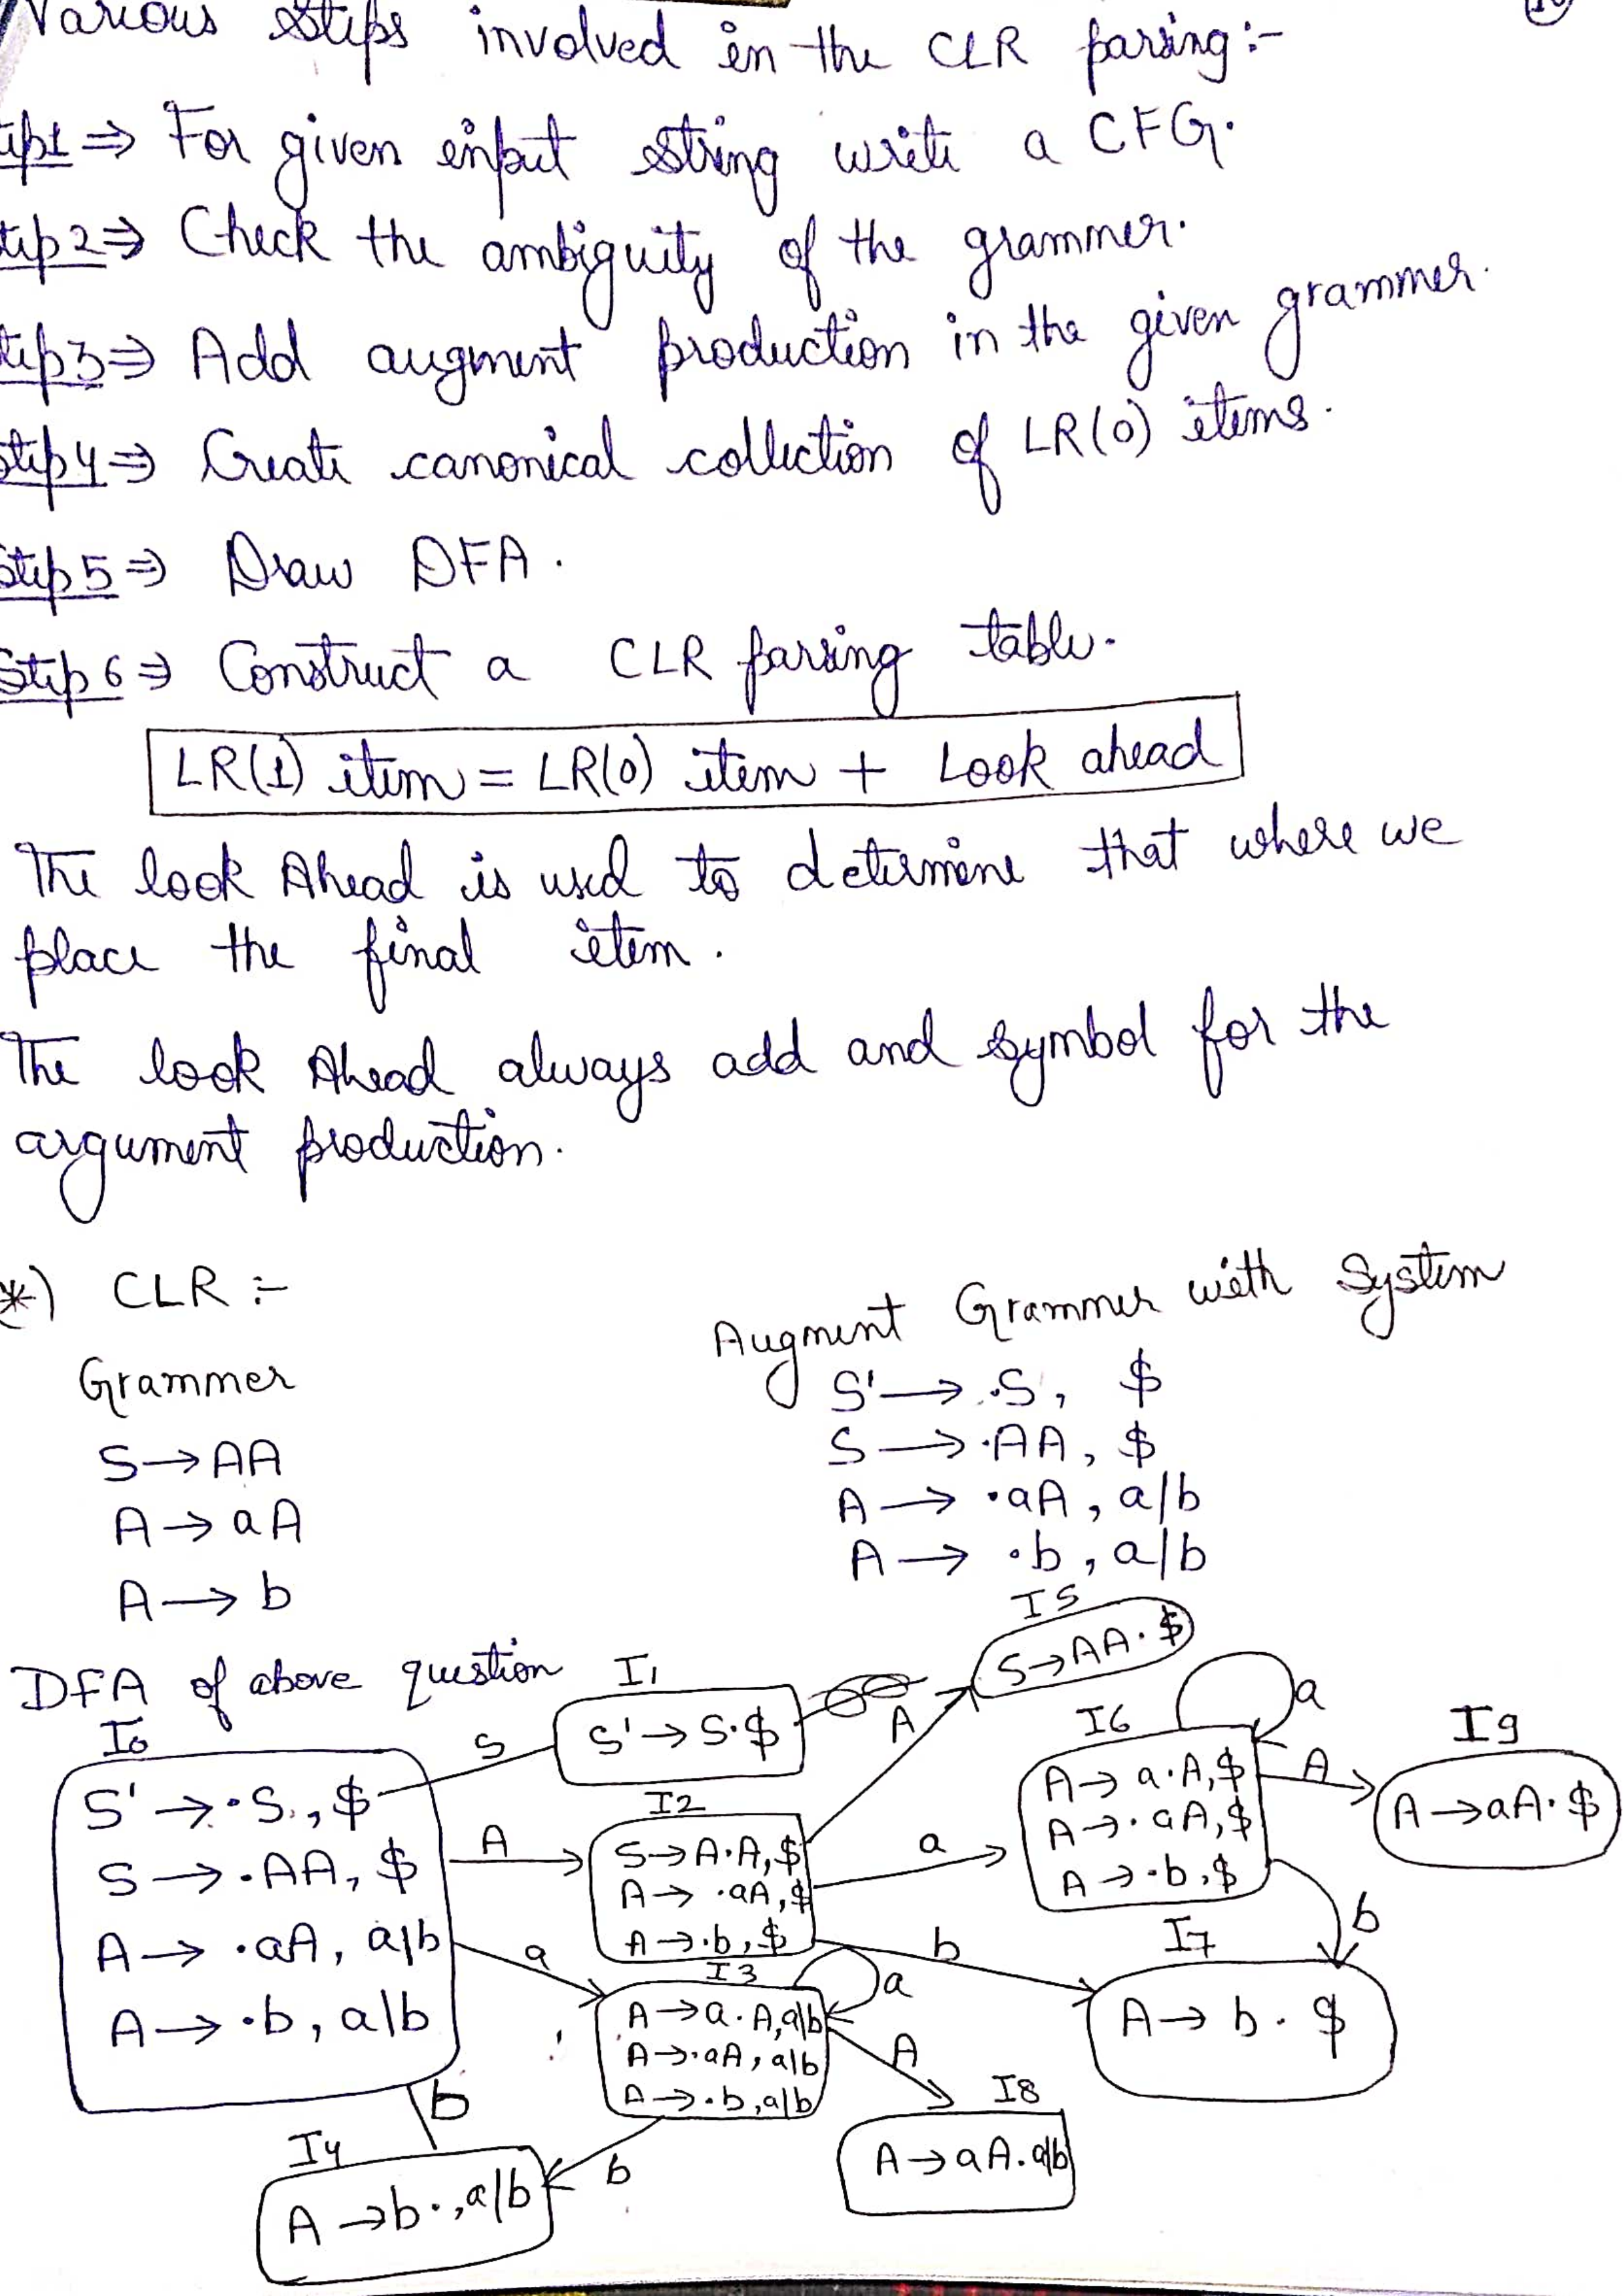 Various Steps involved in the CLR parsing:-
tep1⇒ For given input string write a CFG.
tep2⇒ Check the ambiguity of the grammer.
tep3⇒ Add augment production in the given grammer.
Step4⇒ Create canonical collection of LR(0) items.
Step5⇒ Draw DFA.
Step6⇒ Construct a CLR parsing table.
LR(1) item = LR(0) item + Look ahead
The look Ahead is used to determine that where we
place the final item.
The look Ahead always add and symbol for the
argument production.
*) CLR :-
Grammer
S→AA
A→aA
A→b
Augment Grammer with System
S'→.S, $
S→.AA, $
A→.aA, a|b
A→.b, a|b
DFA of above question
I0
S'→.S, $
S→.AA, $
A→.aA, a|b
A→.b, a|b
S
A
a
b
I1
S'→S.$
I2
S→A.A,$
A→.aA,$
A→.b,$
A
a
b
I3
A→a.A,a|b
A→.aA, a|b
A→.b,a|b
a
A
b
I4
A→b.,a|b
I5
S→AA.$
I6
A→a.A,$
A→.aA,$
A→.b,$
a
A
b
I7
A→b.$
I8
A→aA.a|b
I9
A→aA.$